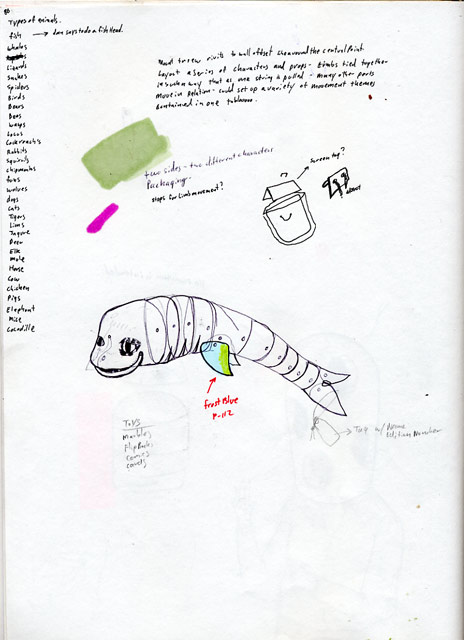 Types of animals.
fish → dan says to do a fish Head.
whales
Lizards
Snakes
Spiders
Birds
Bears
Bees
wasps
Locus
Rabbits
Squirrils
chipmonks
foxs
wolves
dogs
Cats
Tigers
Lions
Jaguare
Deer
Elk
Mole
Horse
Cow
Chicken
Pigs
Elephant
Mice
Cocodille
rivits to wall offset around the central Point.
Layout a series of characters and props - Limbs tied together
in such a way that as one string is pulled - many other parts
move in Relation - could set up a variety of movement themes
Contained in one tableau.
two sides - two different characters
Packaging -
stops for Limb movement?
screen top?
frost Blue
P-112
Toys
Marbles
Flip Books
Comics
Cards
Tag w/ Name
Edition Number